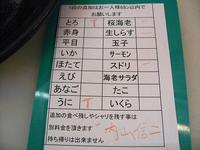 1回の追加はお一人様5カン以内で
お願いします
とろ T 桜海老
赤身 生しらす
平目 玉子
いか サーモン
ほたて スドリ
えび 海老サラダ
あなご たこ
うに T いくら
追加の食べ残しやシャリを残す事は
別料金を頂きます
持ち帰りは出来ません